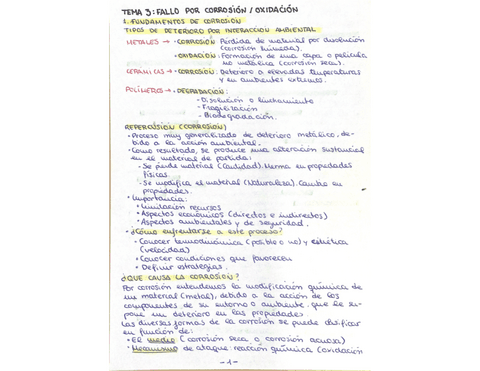 TEMA 3: FALLO POR CORROSIÓN / OXIDACIÓN
1. FUNDAMENTOS DE CORROSIÓN
TIPOS DE DETERIORO POR INTERACCIÓN AMBIENTAL
METALES → • CORROSIÓN: Pérdida de material por disolución
(corrosión húmeda).
• OXIDACIÓN: Formación de una capa o película
no metálica (corrosión seca).
CERÁMICAS → • CORROSIÓN: Deterioro a elevadas temperaturas
y en ambientes extremos.
POLÍMEROS → • DEGRADACIÓN:
- Disolución o hinchamiento
- Fragilización
- Biodegradación.
REPERCUSIÓN (CORROSIÓN)
• Proceso muy generalizado de deterioro metálico, de-
bido a la acción ambiental.
• Como resultado, se produce una alteración sustancial
en el material de partida:
- Se pierde material (Cantidad). Merma en propiedades
físicas.
- Se modifica el material (Naturaleza). Cambio en
propiedades.
• Importancia:
• Limitación recursos
• Aspectos económicos (directos e indirectos)
• Aspectos ambientales y de seguridad.
• ¿Cómo enfrentarse a este proceso?
- Conocer termodinámica (posible o no) y cinética
(velocidad)
- Conocer condiciones que favorecen
- Definir estrategias.
¿QUE CAUSA LA CORROSIÓN?
Por corrosión entendemos la modificación química de
un material (metal), debido a la acción de los
componentes de su entorno o ambiente, que le su-
pone un deterioro en las propiedades
Las diversas formas de la corrosión se puede clasificar
en función de:
• El medio (corrosión seca o corrosión acuosa)
• Mecanismo de ataque: reacción química (oxidación
- 1 -